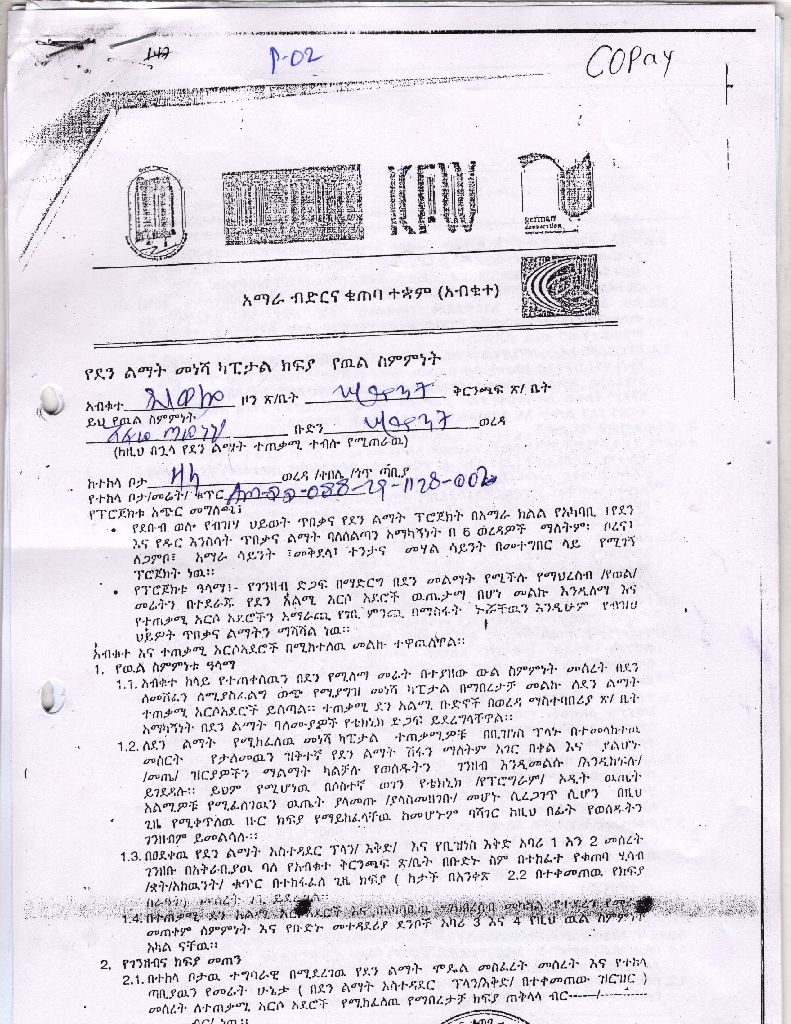 147 P-02 COPay
KFW
german
cooperation
አማራ ብድርና ቁጠባ ተቋም (አብቁተ)
የደን ልማት መነሻ ካፒታል ክፍያ የዉል ስምምነት
አብቁተ ዞን ጽ/ቤት ቅርንጫፍ ጽ/ ቤት
ይህ የዉል ስምምነት
ቡድን ወረዳ
(ከዚህ በኋላ የደን ልማት ተጠቃሚ ተብሎ የሚጠራዉ)
ከተከላ ቦታ ወረዳ /ተብሊ /ጎጥ ጣቢያ
የተከላ ቦታ/መሬት/ ቁጥር 058-29-1128-002
የፕሮጀክቱ አጭር መግለጫ፤
• የደቡብ ወሎ የብዝሃ ህይወት ጥበቃና የደን ልማት ፕሮጀክት በአማራ ክልል የአካባቢ ፤የደን
እና የዱር እንስሳት ጥበቃና ልማት ባለስልጣን አማካኝነት በ 6 ወረዳዎች ማለትም፡ ቦረና፤
ለጋምቦ፤ አማራ ሳይንት ፤መቅደላ፤ ተንታና መሃል ሳይንት በመተግበር ላይ የሚገኝ
ፕሮጀክት ነዉ፡፡
• የፕሮጀክቱ ዓላማ፤- የገንዘብ ድጋፍ በማድርግ በደን መልማት የሚችሉ የማህረሰብ /የወል/
መሬትን በተደራጁ የደን አልሚ አርሶ አደሮች ዉጤታማ በሆነ መልኩ እንዲለማ እና
የተጠቃሚ አርሶ አደሮችን አማራጪ የገቢ ምንጪ በማስፋት ኑሯቸዉን እንዲሁም የብዝሀ
ህይዎት ጥበቃና ልማትን ማሻሻል ነዉ፡፡
አብቁተ እና ተጠቃሚ አርሶአደሮች በሚከተለዉ መልኩ ተዋዉለዋል፡፡
1. የዉል ስምምነቱ ዓላማ
1.1. አብቁተ ከላይ የተጠቀሰዉን በደን የሚለማ መሬት በተያዘው ውል ስምምነት መሰረት በደን
ለመሸፈን ለሚያስፈልግ ወጭ የሚያግዝ መነሻ ካፒታል በማበረታቻ መልኩ ለደን ልማት
ተጠቃሚ አርሶአደሮች ይሰጣል፡፡ ተጠቃሚ ደን አልሚ ቡድኖች በወረዳ ማስተባበሪያ ጽ/ ቤት
አማካኝነት በደን ልማት ባለሙያዎች የቴክኒክ ድጋፍ ይደረግላቸዋል፡፡
1.2. ለደን ልማት የሚከፈለዉ መነሻ ካፒታል ተጠቃሚዎቹ በቢዝነስ ፕላኑ በተመላከተዉ
መስርት የታለመዉን ዝቅተኛ የደን ልማት ሽፋን ማለትም አገር በቀል እና ያልሆኑ
/መጤ/ ዝርያዎችን ማልማት ካልቻሉ የወሰዱትን ገንዘብ እንዲመልሱ /እንዲከፍሉ/
ይገደዳሉ፡፡ ይህም የሚሆነዉ በሶስተኛ ወገን የቴክኒክ /የፕሮግራም/ ኦዲት ዉጤት
አልሚዎቹ የሚፈለገዉን ዉጤት ያላመጡ /ያላስመዘገቡ/ መሆኑ ሲረጋገጥ ሲሆን በዚህ
ጊዜ የሚቀጥለዉ ዙር ክፍያ የማይከፈላቸዉ ከመሆኑም ባሻገር ከዚህ በፊት የወሰዱትን
ገንዘብም ይመልሳሉ፡፡
1.3. በፀደቀዉ የደን ልማት አስተዳደር ፕላን/ እቅድ/ እና የቢዝነስ እቅድ አባሪ 1 እን 2 መሰረት
ገንዘቡ በአቅራቢያዉ ባለ የአብቁተ ቅርንጫፍ ጽ/ቤት በቡድኑ ስም በተከፈተ የቁጠባ ሂሳብ
/ቋት/አከዉንት/ ቁጥር በተከፋፈለ ጊዜ ክፍያ ( ከታች በአንቀጽ 2.2 በተቀመጠዉ የክፍያ
1.4. በተጠቃሚ ደን አልሚ አርሶአደሮች እና በአካባቢዉ
መጠቀም ስምምነት እና የቡድኑ መተዳደሪያ ደንቦች አባሪ 3 እና 4 የዚህ ዉል ስምምነት
አካል ናቸዉ፡፡
2. የገንዘብና ክፍያ መጠን
2.1. በተከላ ቦታዉ ተግባራዊ በሚደረገዉ የደን ልማት ሞዴል መስፈረት መሰረት እና የተከላ
ጣቢያዉን የመሬት ሁኔታ ( በደን ልማት አስተዳደር ፕላን/እቅድ/ በተቀመጠው ዝርዝር )
መሰረት ለተጠቃሚ አርሶ አደሮች የሚከፈለዉ የማበረታቻ ክፍያ ጠቅላላ ብር------/----------
ብር/ ነዉ፡፡